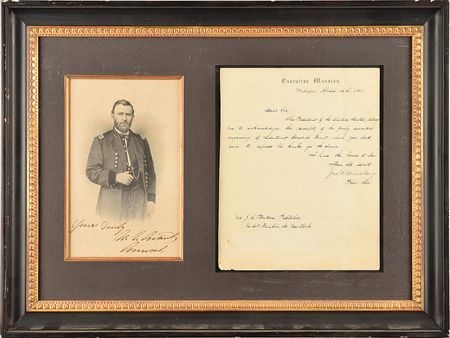 Yours Truly
U. S. Grant
General
Executive Mansion,
Washington,
Dear Sir
The President of the United States,
me to acknowledge the receipt, of the finely executed
engraving of Lieutenant General Grant, which you sent,
and to express his thanks for the same.
I have the honor to be
Jno. G. Nicolay
Priv. Sec.
Mr. J. C. Buttre, Publisher
Franklin St. New York.